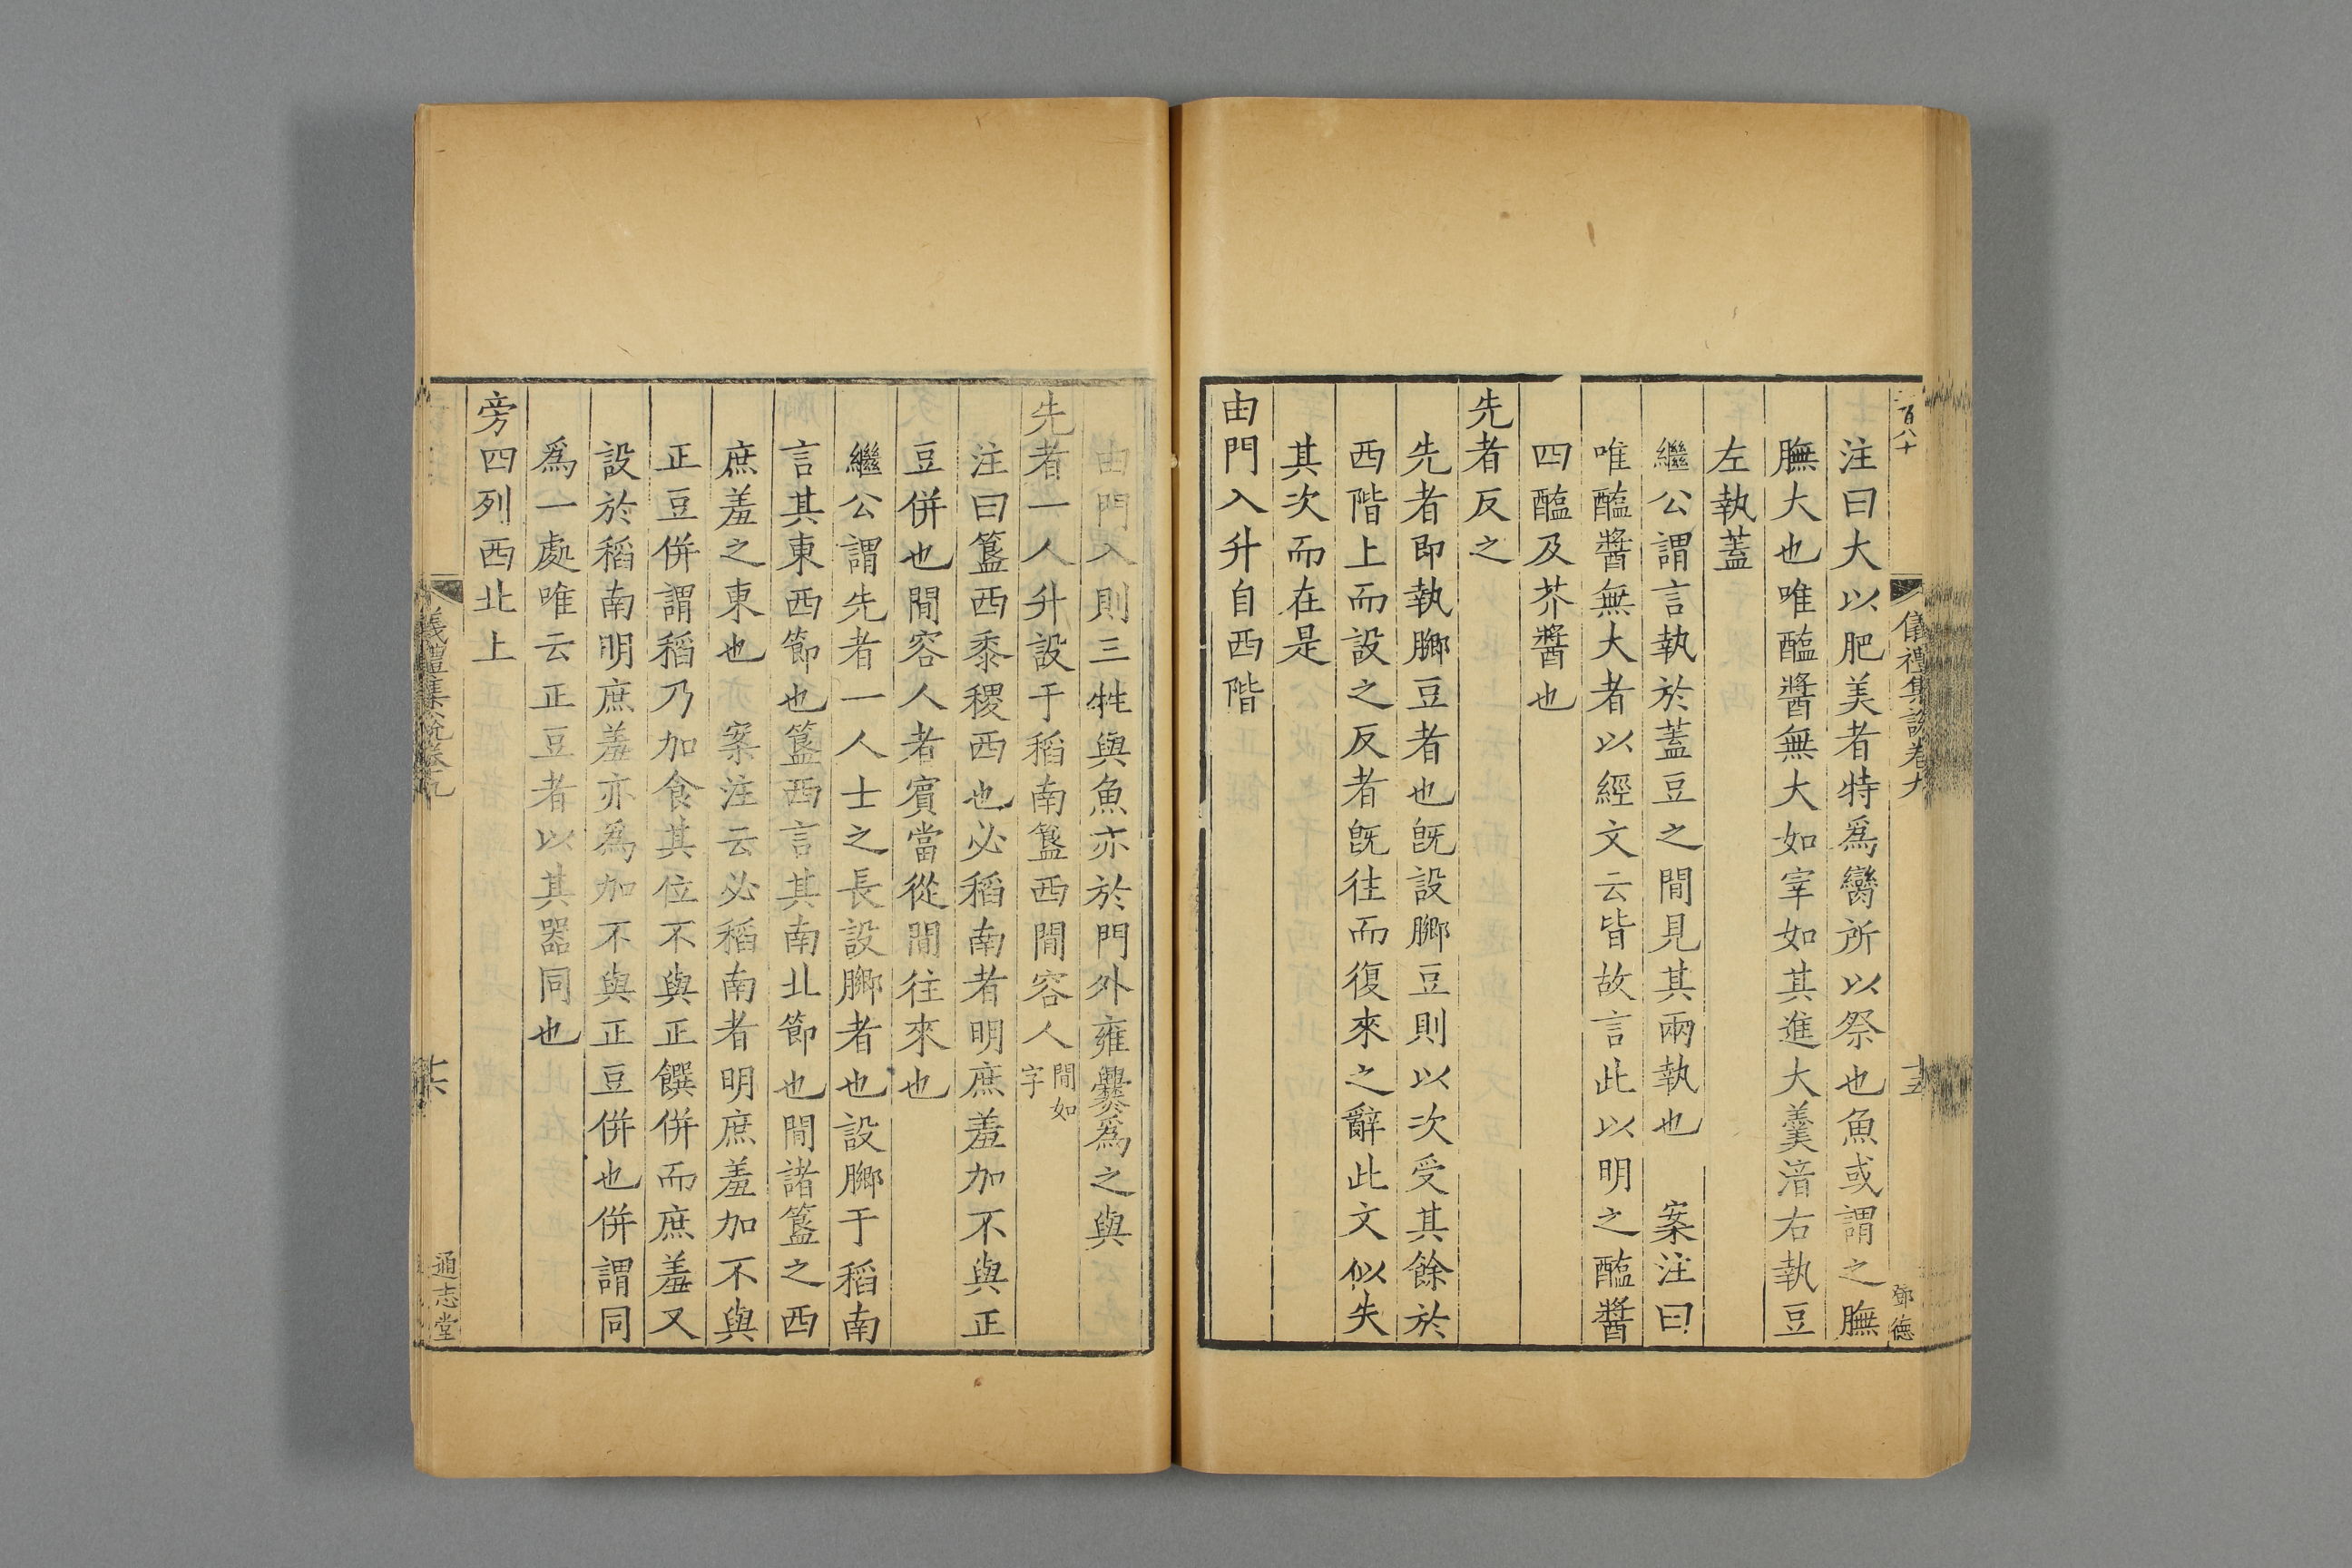 二百八十
儀禮集說卷九
十五
鄧德
注曰大以肥美者特爲臠所以祭也魚或謂之膴
膴大也唯醢醬無大如宰如其進大羹湆右執豆
左執蓋
繼公謂言執於蓋豆之閒見其兩執也　案注曰
唯醢醬無大者以經文云皆故言此以明之醢醬
四醢及芥醬也
先者反之
先者即執膷豆者也旣設膷豆則以次受其餘於
西階上而設之反者旣往而復來之辭此文似失
其次而在是
由門入升自西階
由門入則三牲與魚亦於門外雍爨爲之與
先者一人升設于稻南簋西閒容人閒如字
注曰簋西黍稷西也必稻南者明庶羞加不與正
豆併也閒容人者賓當從閒往來也
繼公謂先者一人士之長設膷者也設膷于稻南
言其東西節也簋西言其南北節也閒諸簋之西
庶羞之東也　案注云必稻南者明庶羞加不與
正豆併謂稻乃加食其位不與正饌併而庶羞又
設於稻南明庶羞亦爲加不與正豆併也併謂同
爲一處唯云正豆者以其器同也
旁四列西北上
儀禮集說卷九
十六
通志堂